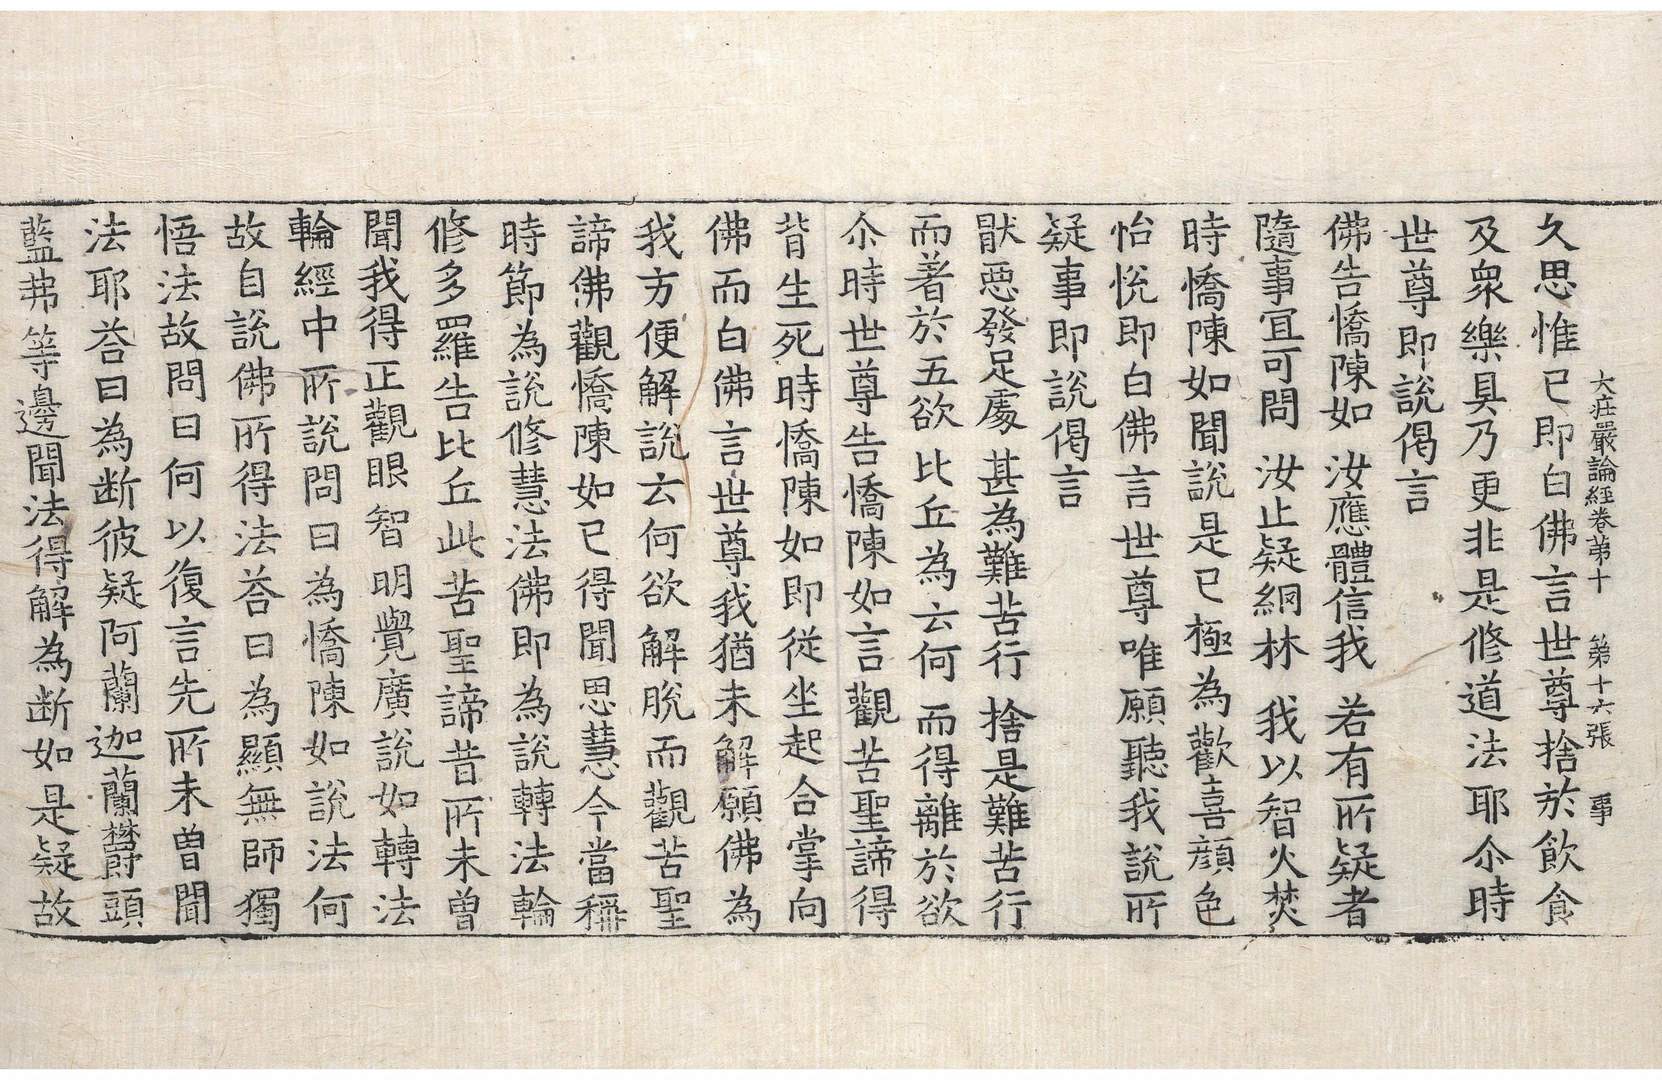 大莊嚴論經卷苐十　苐十六張　事
久思惟已即白佛言世尊捨於飲食
及衆樂具乃更非是修道法耶尒時
世尊即說偈言
佛告憍陳如　汝應體信我　若有所疑者
隨事冝可問　汝止疑網林　我以智火焚
時憍陳如聞說是已極為歡喜顔色
怡悅即白佛言世尊唯願聽我說所
疑事即說偈言
猒惡發足處　甚為難苦行　捨是難苦行
而著於五欲　比丘為云何　而得離於欲
尒時世尊告憍陳如言觀苦聖諦得
背生死時憍陳如即從坐起合掌向
佛而白佛言世尊我猶未解願佛為
我方便解說云何欲解脫而觀苦聖
諦佛觀憍陳如已得聞思慧今當稱
時節為說修慧法佛即為說轉法輪
修多羅告比丘此苦聖諦昔所未曽
聞我得正觀眼智明覺廣說如轉法
輪經中所說問曰為憍陳如說法何
故自說佛所得法荅曰為顯無師獨
悟法故問曰何以復言先所未曽聞
法耶荅曰為断彼疑阿蘭迦蘭欝頭
藍弗等邊聞法得解為断如是疑故